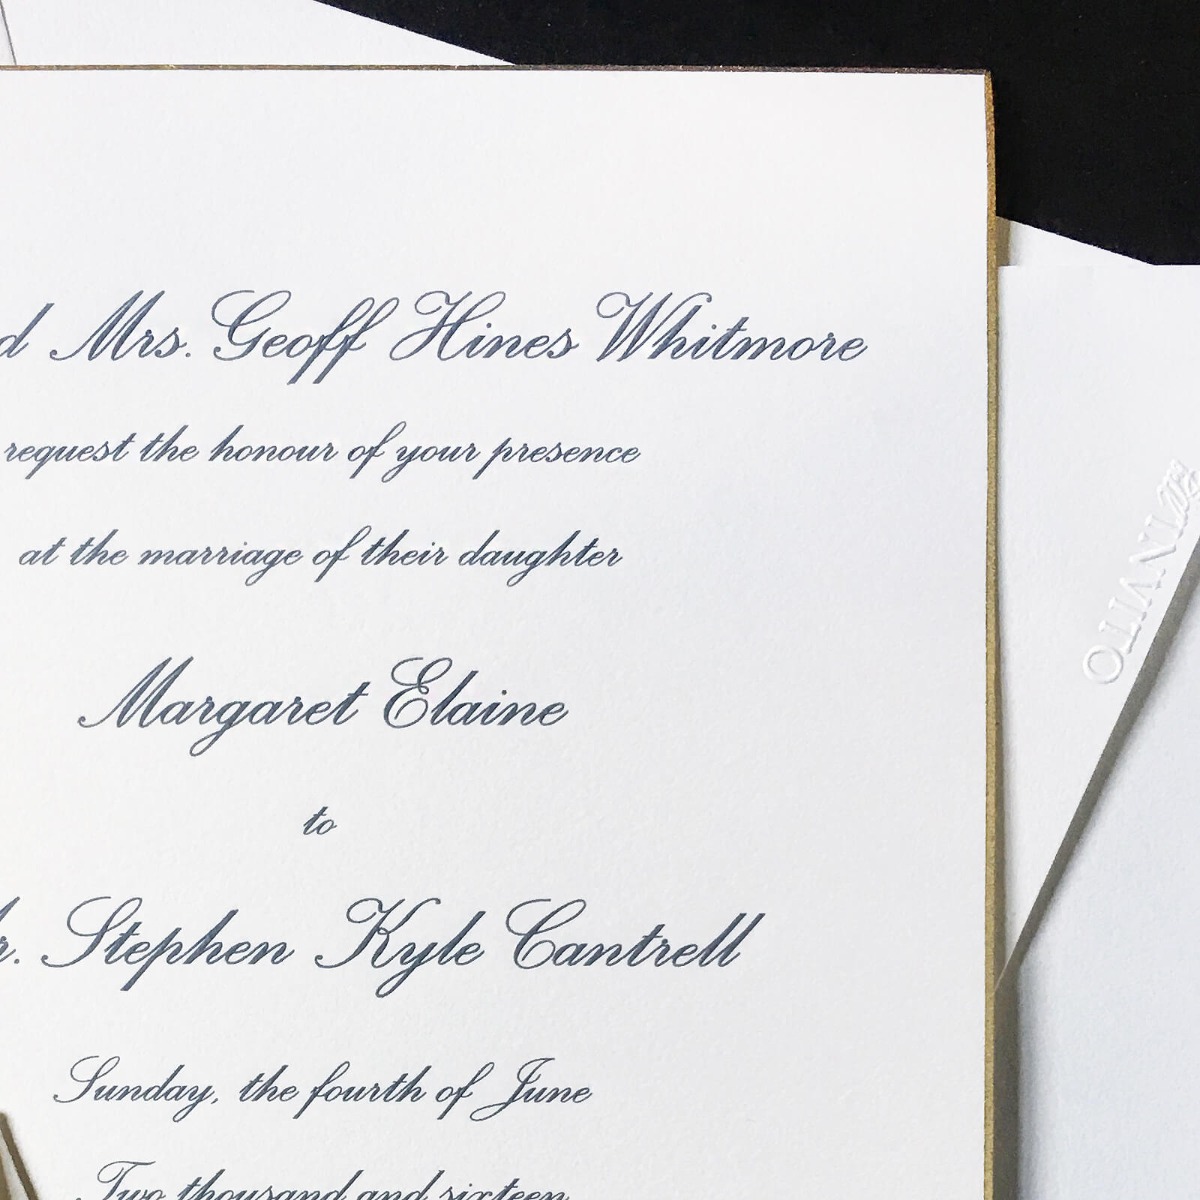 d Mrs. Geoff Hines Whitmore
request the honour of your presence
at the marriage of their daughter
Margaret Elaine
to
r. Stephen Kyle Cantrell
Sunday, the fourth of June
Two thousand and sixteen